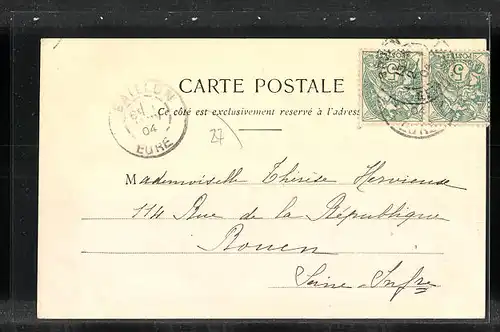 CARTE POSTALE
Ce côté est exclusivement reservé à l'adresse
GAILLON
04
EURE
5
5
EURE
27
Mademoiselle Thérèse Hervieuse
114 Rue de la République
Rouen
Seine-Infre